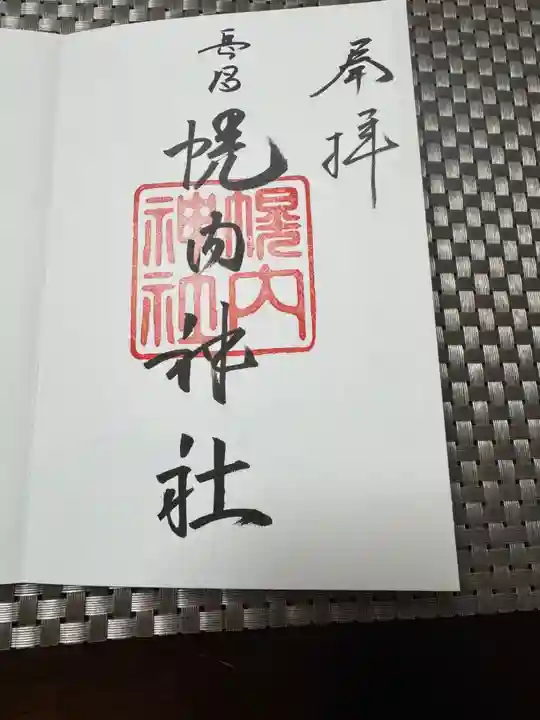 奉拝
雲浮
幌内神社
幌内
神社